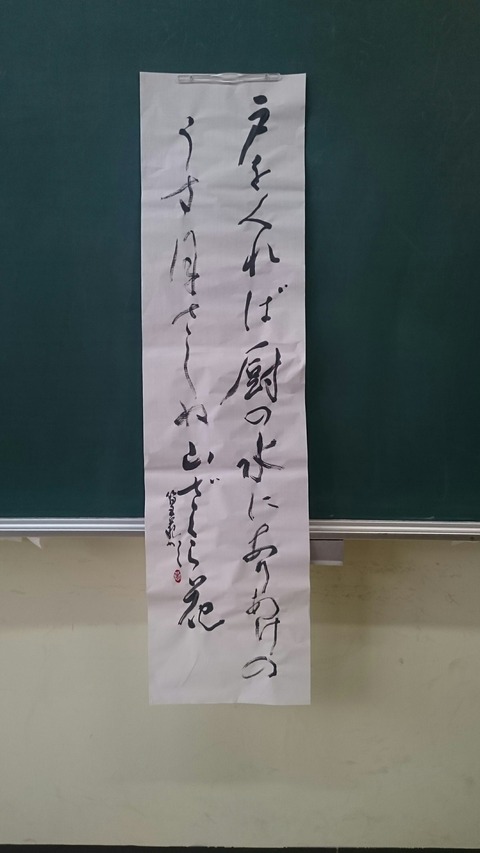 戸をくれば厨の水にありあけの
うす月さしぬ山ざくら花